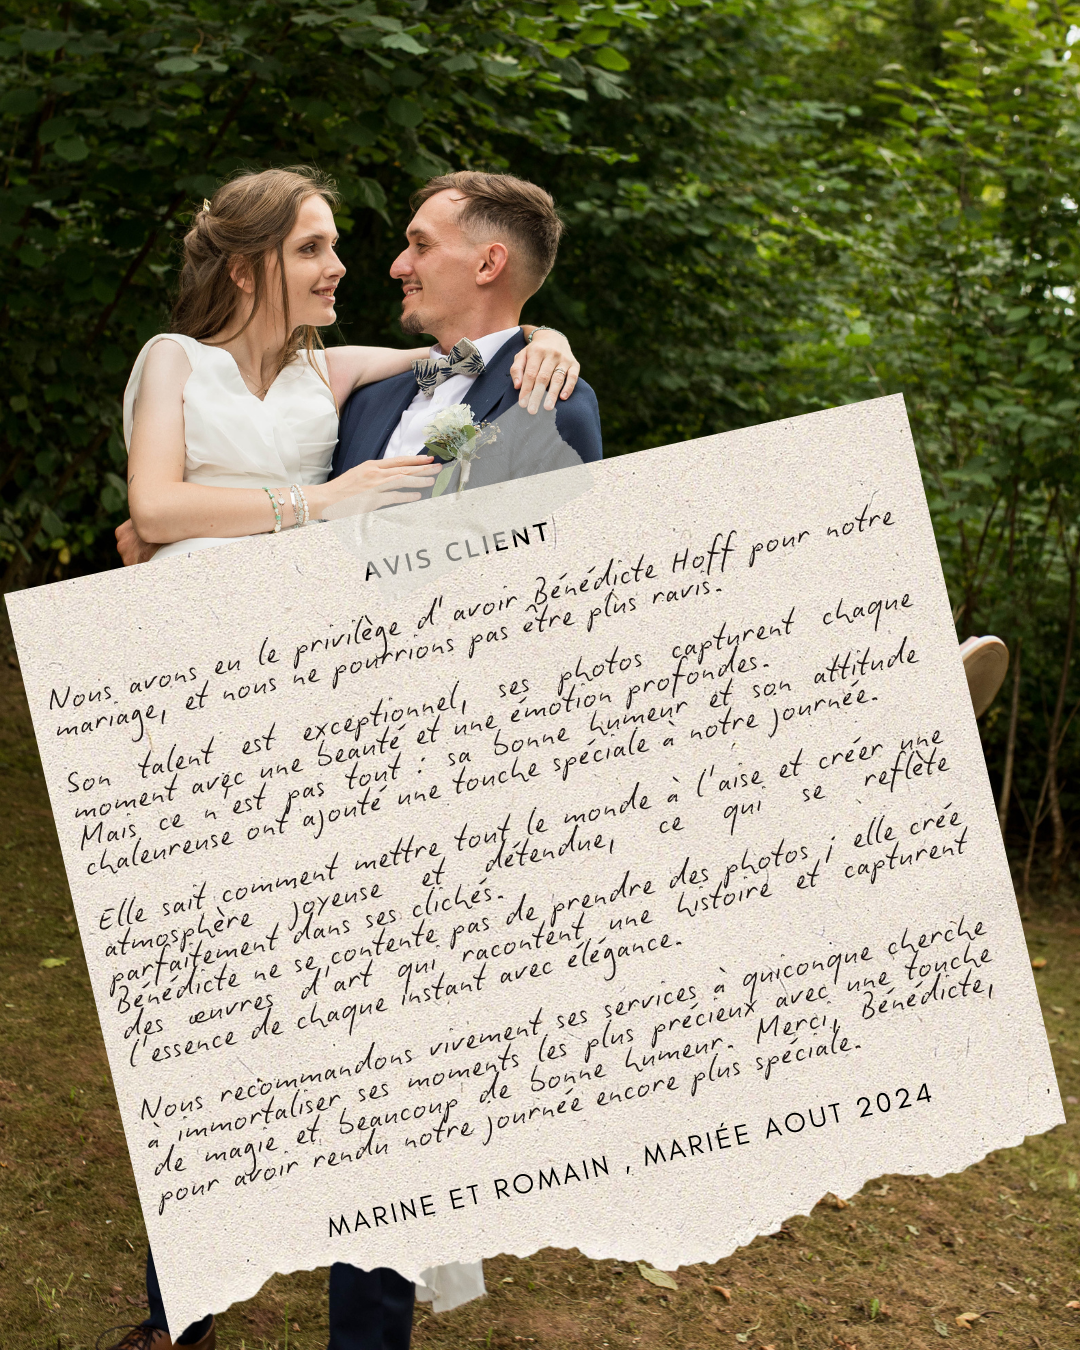 AVIS CLIENT
Nous avons eu le privilège d'avoir Bénédicte Hoff pour notre
mariage, et nous ne pourrions pas être plus ravis.
Son talent est exceptionnel, ses photos capturent chaque
moment avec une beauté et une émotion profondes.
Mais ce n'est pas tout : sa bonne humeur et son attitude
chaleureuse ont ajouté une touche spéciale à notre journée.
Elle sait comment mettre tout le monde à l'aise et créer une
atmosphère joyeuse et détendue, ce qui se reflète
parfaitement dans ses clichés.
Bénédicte ne se contente pas de prendre des photos ; elle crée
des œuvres d'art qui racontent une histoire et capturent
l'essence de chaque instant avec élégance.
Nous recommandons vivement ses services à quiconque cherche
à immortaliser ses moments les plus précieux avec une touche
de magie et beaucoup de bonne humeur. Merci, Bénédicte,
pour avoir rendu notre journée encore plus spéciale.
MARINE ET ROMAIN , MARIÉE AOUT 2024